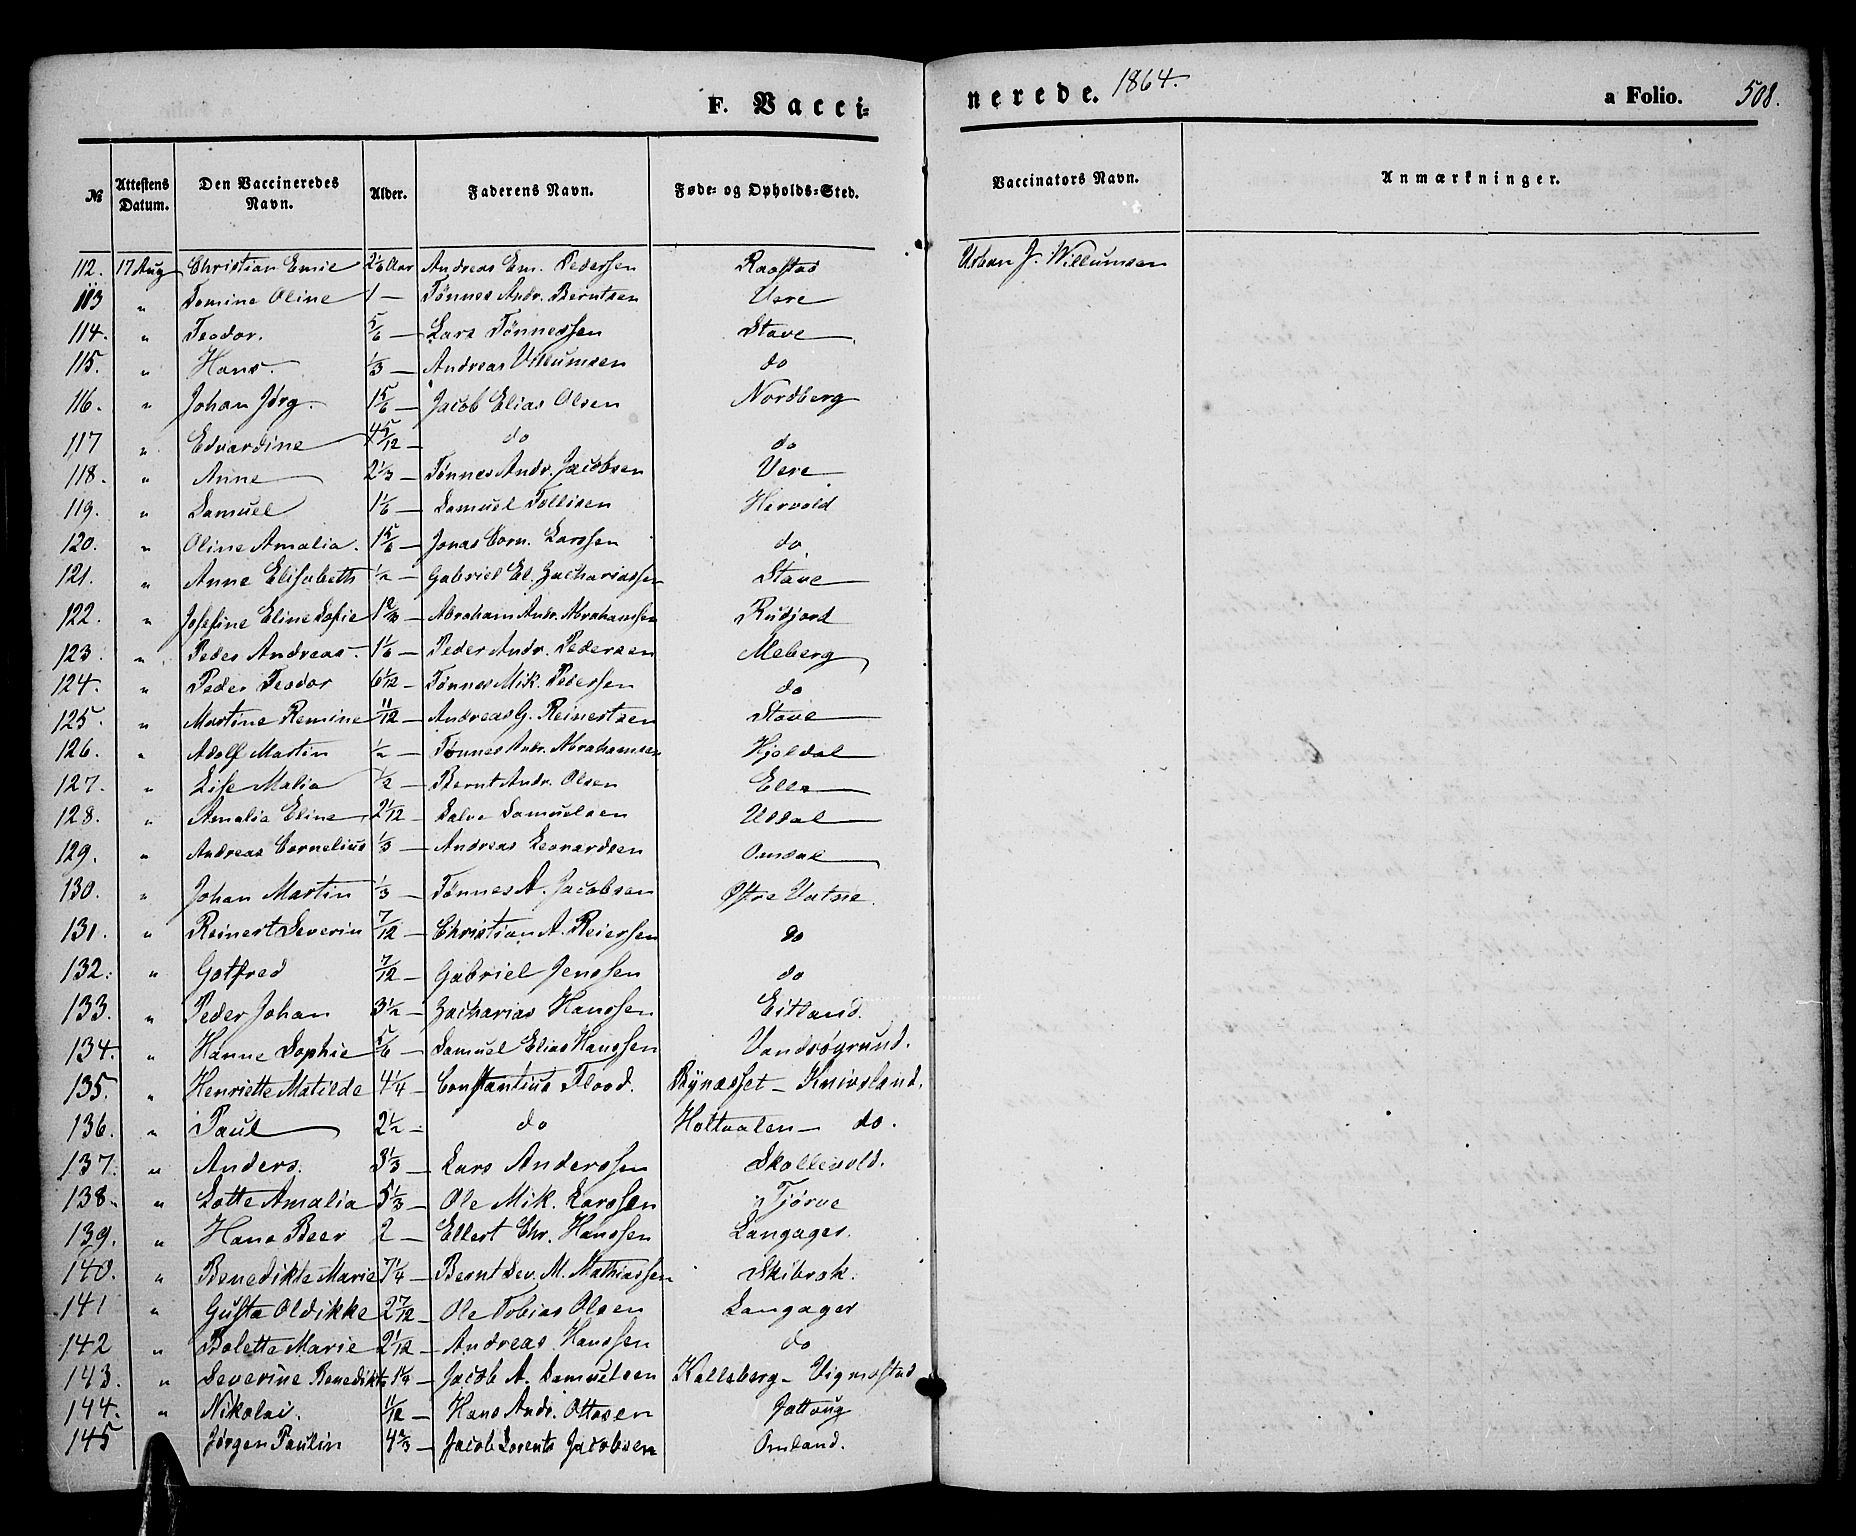 F. Vacci-
nerede. 1864.
a Folio. 508.
№ Attestens Datum. Den Vaccineredes Navn. Alder. Faderens Navn. Føde- og Opholds-Sted. Vaccinators Navn. Anmærkninger.
112. 17 Aug Christian Emie 2 1/6 Aar Andreas Em. Pedersen Raastad Urban J. Willumsen
113 " Tomine Oline 1 — Tønnes Andr. Berntsen Vere
114. " Teodor. 5/6 — Lars Tønnessen Stave
115. " Hans. 1/3 — Andreas Villumsen do
116. " Johan Jørg. 1 5/6 — Jacob Elias Olsen Nordberg
117 " Edvardine 4 5/12 — do do
118. " Anne 2 1/3 — Tønnes Andr. Jacobsen Vere
119. " Samuel 1 1/6 — Samuel Tollisen Hervold
120. " Oline Amalia. 1 5/6 — Jonas Corn. Larssen do
121. " Anne Elisabeth 1/2 — Gabriel El. Zachariassen Stave
122. " Josefine Eline Sofie 1 2/3 — Abraham Andr. Abrahamsen Rudjord
123. " Peder Andreas. 1 1/6 — Peder Andr. Pedersen Meberg
124. " Peder Teodor 6 1/12 — Tønnes Mik. Pedersen do
125. " Martine Remine 11/12 — Andreas G. Reinertsen Stave
126. " Adolf Martin 1/2 — Tønnes Andr. Abrahamsen Hjeldal
127. " Lise Malia 1/2 — Bernt Andr. Olsen Elle
128. " Amalia Eline 2 1/12 — Salve Samuelsen Uddal
129. " Andreas Cornelius 1/3 — Andreas Leonardsen Omdal
130. " Johan Martin 1/3 — Tønnes A. Jacobsen Østre Vatne.
131. " Reinert Severin 7/12 — Christian A. Reiersen do
132. " Gotfred 7/12 — Gabriel Jenssen do
133. " Peder Johan 3 1/2 — Zacharias Hanssen Eitland.
134. " Hanne Sophie 5/6 — Samuel Elias Hanssen Vandsøgrund.
135. " Henriette Matilde 4 1/4 — Constantius Flood. Bynæsset — Knivsland.
136. " Paul 2 1/2 — do Holtaalen — do.
137. " Anders. 3 1/3 — Lars Andersen Skollevold.
138. " Lotte Amalia 5 1/3 — Ole Mik. Larssen Tjørve
139. " Hans Beer 2 — Ellert Chr. Hanssen Langager.
140. " Benedikte Marie 7 1/4 — Bernt Sev. M. Mathiassen Skibrok.
141 " Gusta Oldikke 2 7/12 — Ole Tobias Olsen Langager
142 " Bolette Marie 2 1/12 — Andreas Hanssen do
143. " Severine Benedikte 1 1/3 — Jacob A. Samuelsen Kallsberg — Vigmostad
144. " Nikolai. 11/12 — Hans Andr. Ottosen Jattoug
145 " Jørgen Paulin 4 2/3 — Jacob Lorents Jacobsen Omland.